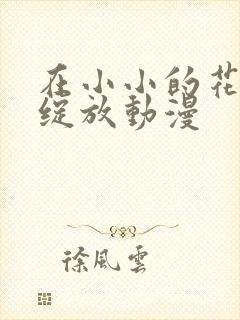 在小小的花
綻放動漫
徐風雲